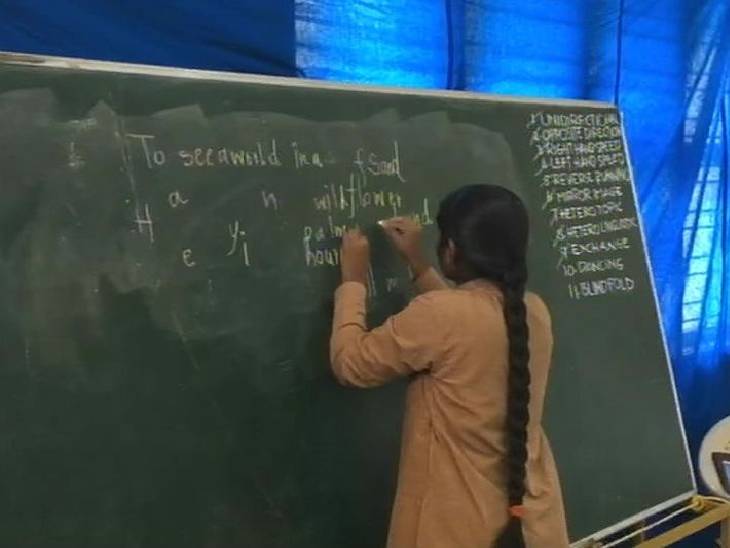 To see a world in a f Sand
a n wildflower
H palm nd
e yi hour
ll m
1 UNIDIRECTIONAL
2 OPPOSITE DIRECTION
3 RIGHT HAND SPEED
4 LEFT HAND SPEED
5 REVERSE RUNNING
6 MIRROR IMAGE
7 HETEROTOPIC
8 HETEROLINGUISTIC
9 EXCHANGE
10. DANCING
11. BLINDFOLD